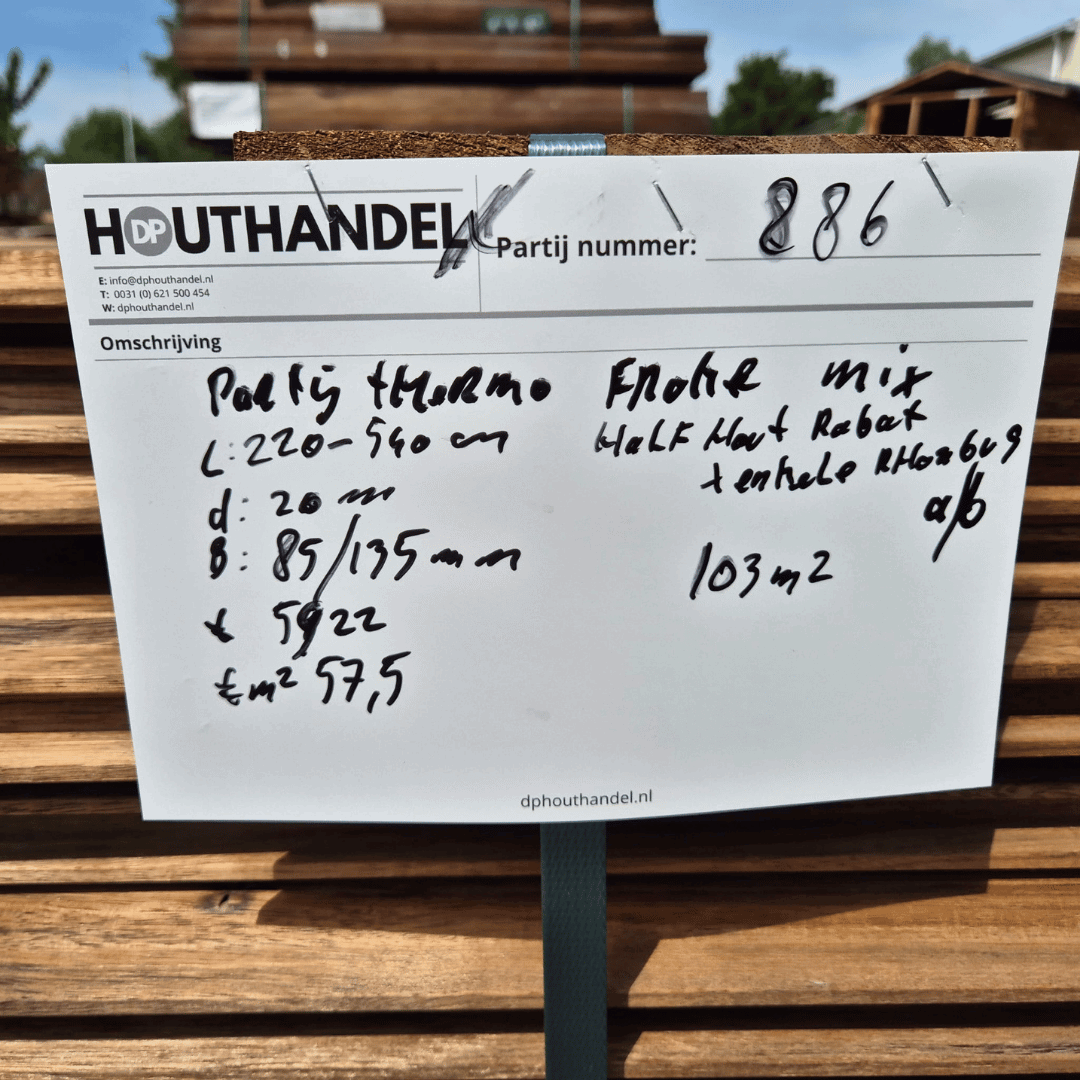 HOUTHANDEL
DP
E: info@dphouthandel.nl
T: 0031 (0) 621 500 454
W: dphouthandel.nl
Partij nummer: 886
Omschrijving
Partij thermo
L: 220-540 cm
d: 20 mm
B: 85/135 mm
€ 5922
€ m2 57,5
Frake mix
Half Hout Rabat
+ enkele Rhombus
a/b
103 m2
dphouthandel.nl